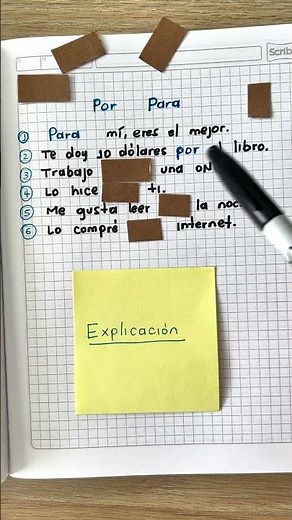 Por Para
① Para mí, eres el mejor.
② Te doy 10 dólares por el libro.
③ Trabajo una ON
④ Lo hice ti.
⑤ Me gusta leer la noc
⑥ Lo compré internet.
Explicación